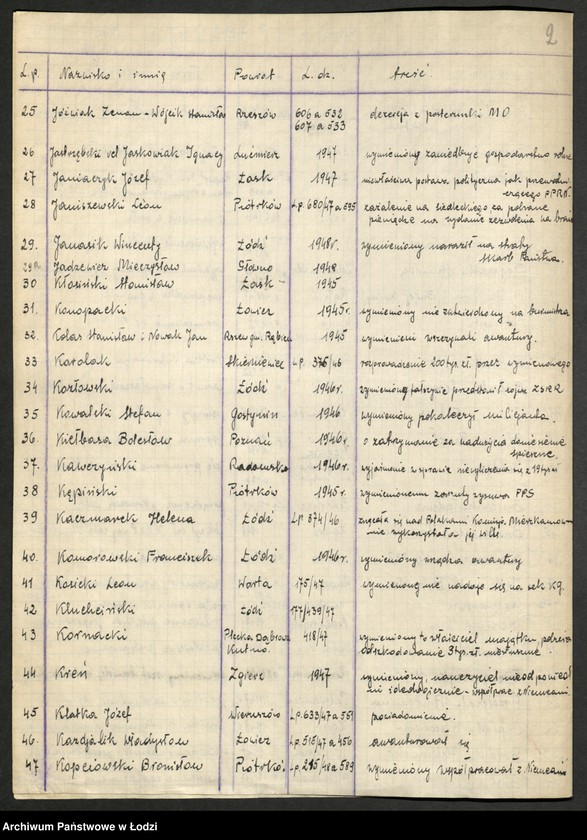 2
L.p. Nazwisko i imię Powiat L. dz. treść
25 Jóźwiak Zenon - Wójcik Stanisław Rzeszów 606 a 532 dezercja z posterunku MO
607 a 533
26 Jastrzębski vel Jaskowiak Ignacy 1947 wymieniony zaniedbuje gospodarstwo rolne
27 Janiaczyk Józef Łask 1947 niewłaściwa postawa polityczna jak przewodni-
czącego PPRN.
28 Janiszewski Leon Piotrków L.p. 680/47 a 595 zażalenie na siedleckiego za pobrane
pieniądze na wydanie zezwolenia na broń
29. Janasik Wincenty Łódź 1948r. wymieniony naraził na straty
Skarb Państwa.
29a Jadzewicz Mieczysław Głowno 1948
30 Kłosiński Stanisław Łask 1945
31. Konopacki Łowicz 1945r. wymieniony nie zatwierdzony na burmistrza
32. Kolas Stanisław i Nowak Jan gm. Rąbień 1945 wymienieni wszczynali awantury.
33 Karolak Skierniewice L.p. 376/46 rozprowadzenie 200 tys. zł. przez wymienionego
34 Kozłowski Łódź 1946r. wymieniony fałszywie przedstawił ZSRR
35 Kowalski Stefan Gostynin 1946 wymieniony pokaleczył
36. Kiełbasa Bolesław Poznań 1946r. o zatrzymanie za nadużycia doniesienie
37. Kawczyński Radomsko 1946r. wyjaśnienie w sprawie
38 Kępiński Piotrków 1945r. wymienionemu zarzuty PPS
39 Kaczmarek Helena Łódź L.p. 374/46 znęcała się nad Polakami Komisja Mieszkaniowa
nie wykorzystała jej willi.
40. Komorowski Franciszek Łódź 1946r. wymieniony urządza awantury
41 Kosicki Leon Warta 175/47 wymieniony nie nadaje się na sek. KG.
42 Kluchciński Łódź 177/439/47
43 Kornacki Płecka Dąbrowa 418/47 wymieniony to właściciel majątku, pobiera
Kutno. odszkodowanie 3 tys. zł. miesięcznie.
44 Kreń Zgierz 1947 wymieniony, nauczyciel nieodpowied-
ni ideologicznie - współprac. z Niemcami
45 Klatka Józef Wieruszów L.p. 633/47 a 551 posiadomienie.
46. Kazdjalik Władysław Łowicz L.p. 515/47 a 456 awanturował się
47 Kopciowski Bronisław Piotrków L.p. 215/48 a 589 wymieniony współpracował z Niemcami
Archiwum Państwowe w Łodzi